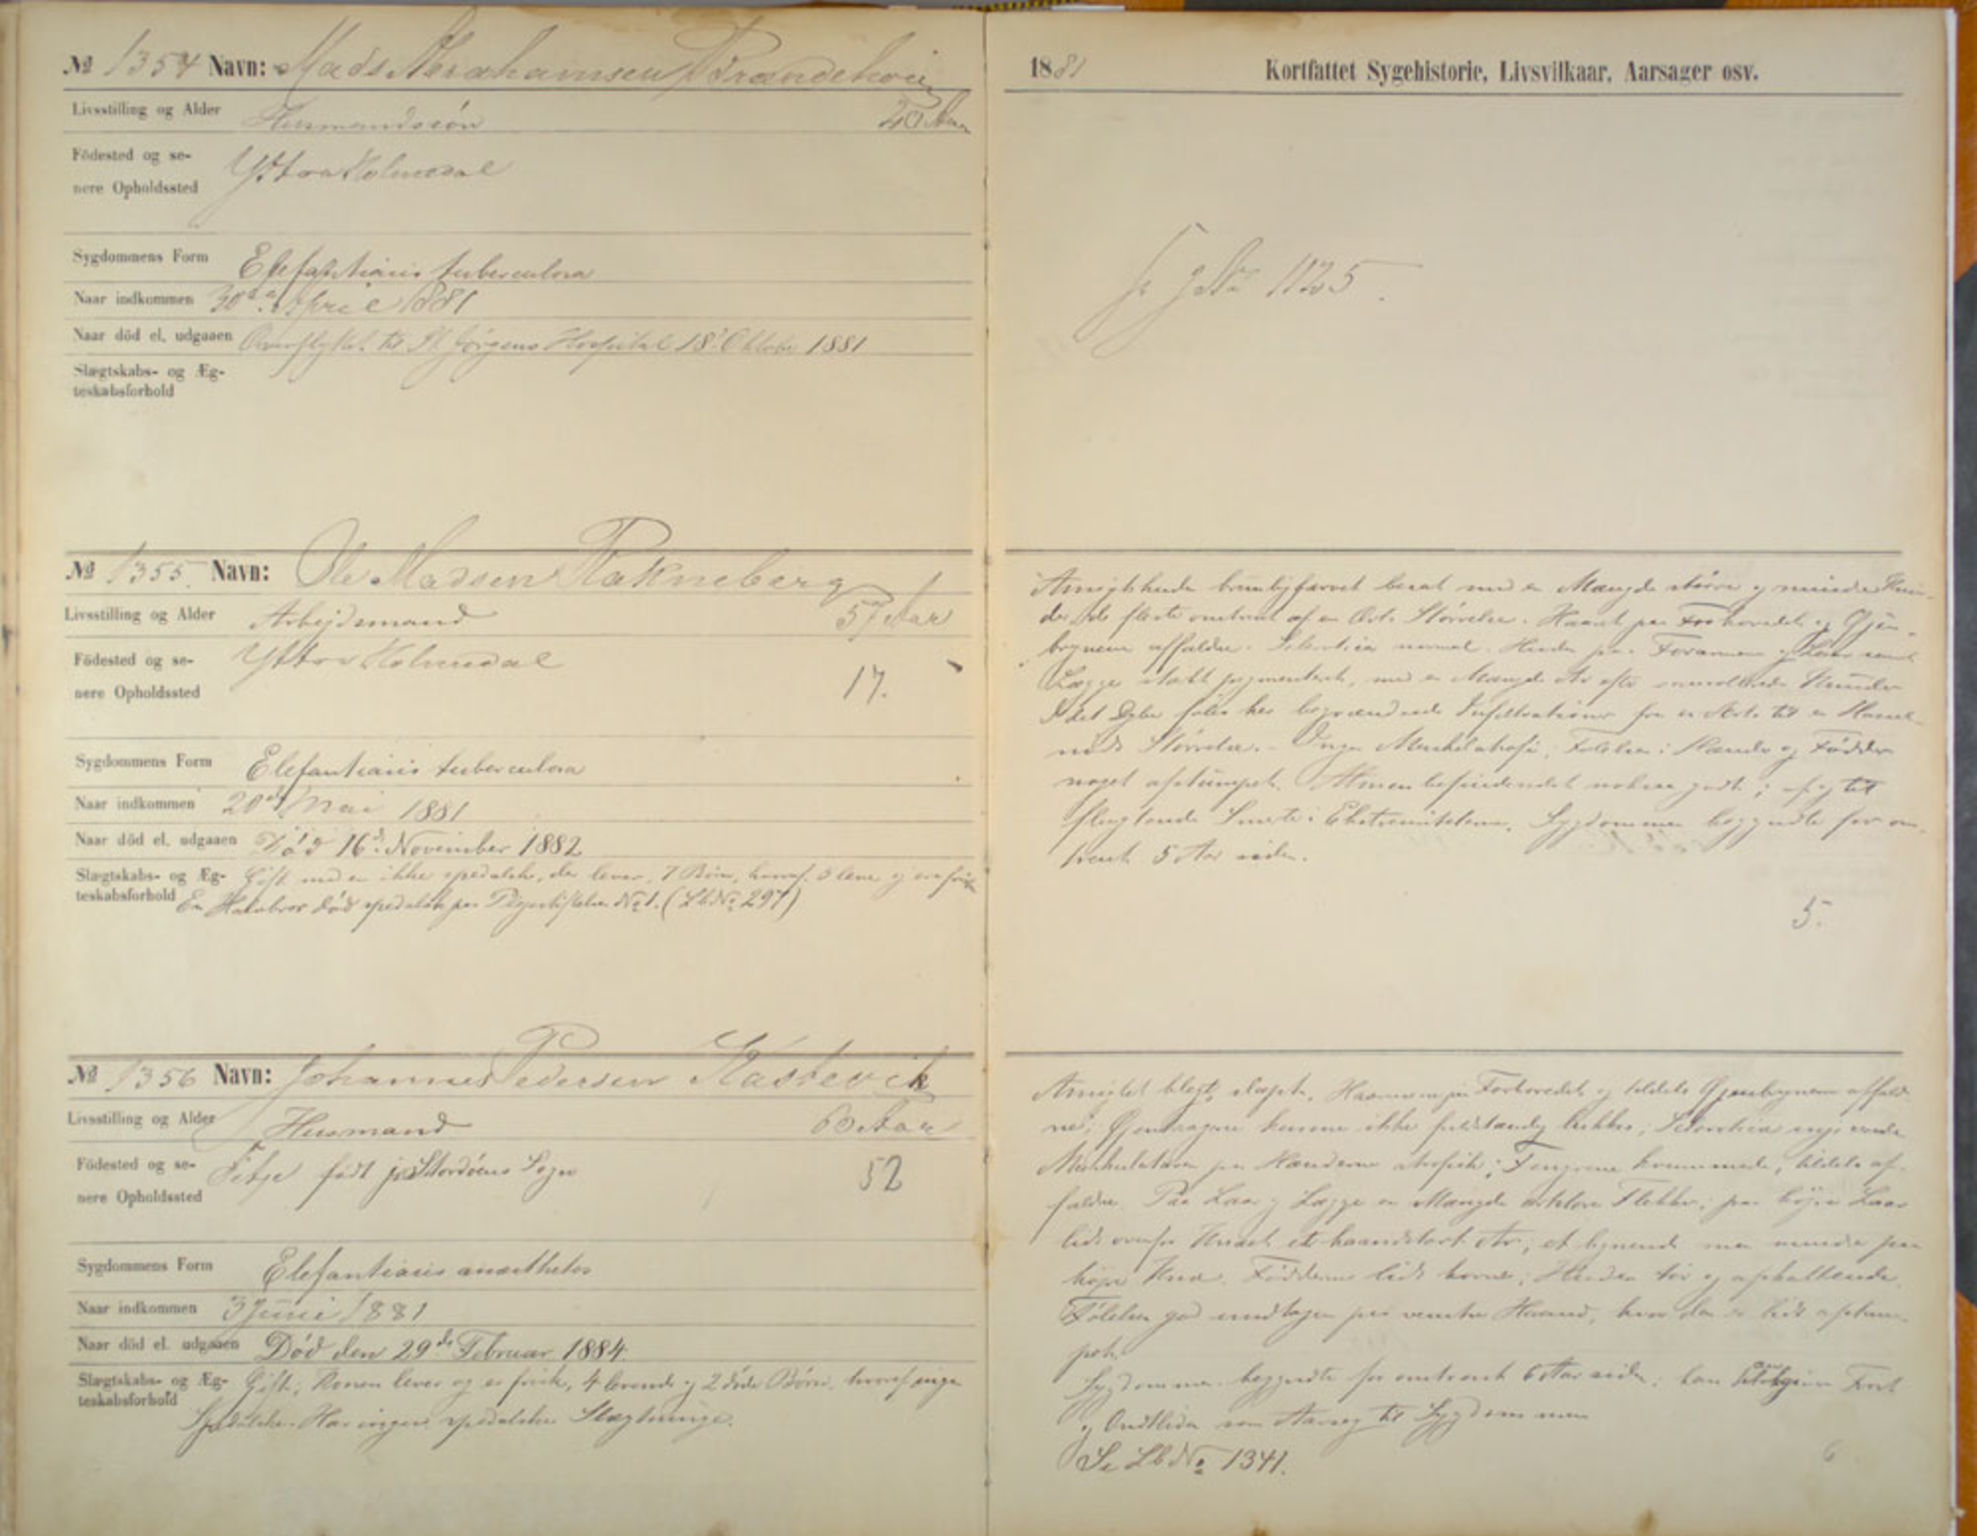 № 1354 Navn: Mads Abrahamsen Brandehoug
Livsstilling og Alder Husmandssön 20 Aar
Födested og se-
nere Opholdssted Yttre Holmedal
Sygdommens Form Elefantiasis tuberculosa
Naar indkommen 30te April 1881
Naar död el. udgaaen Overflyttet til St Jörgens Hospital 18' Oktober 1881
Slægtskabs- og Æg-
teskabsforhold
№ 1355 Navn: Ole Madsen Rakneberg
Livsstilling og Alder Arbejdsmand 57 Aar
Födested og se- Yttre Holmedal
nere Opholdssted 17.
Sygdommens Form Elefantiasis tuberculosa
Naar indkommen 20de Mai 1881
Naar död el. udgaaen Död 16de November 1882
Slægtskabs- og Æg- Gift med en ikke spedalsk, der lever, 7 Börn, hvoraf 5 leve og ere friske
teskabsforhold En Halvbror död spedalsk paa Plejestiftelsen No 1. (Lb.No 297)
№ 1356 Navn: Johannes Pedersen Kastevik
Livsstilling og Alder Husmand 60 Aar
Födested og se- Fitje født paa Stordöens Sogn 52
nere Opholdssted
Sygdommens Form Elefantiasis anæsthetos
Naar indkommen 3 Juni 1881
Naar död el. udgaaen Död den 29de Februar 1884.
Slægtskabs- og Æg- Gift; Konen lever og er frisk, 4 levende og 2 döde Börn, hvoraf ingen
teskabsforhold
Spedalske. Har ingen spedalske Slægtninge.
1881 Kortfattet Sygehistorie, Livsvilkaar, Aarsager osv.
No 1125.
Ansigtshuden besat med en Mængde större og mindre Knu-
der, de fleste omtrent af en Ærts Störrelse. Haaret paa Forhovedet og Öjen-
brynene affaldne. normal. Huden paa Forarmene og
Lægge stærkt pigmenteret, med en Mængde Ar efter Knuder
I det Dybe föles her begrændsede Infiltrationer fra en Ærts til en Hassel-
nöds Störrelse. Ingen Muskelatrofi; Fölelsen i Hænder og Födder
noget afstumpet. Almenbefindendet nokså godt; af og til
flygtende Smerte i Ekstremiteterne. Sygdommen begyndte for om-
trent 5 Aar siden.
5.
Ansigtet blegt, slapt. Haarene paa Forhovedet og tildels Öjenbrynene affald-
ne; Öjenlaagene kunne ikke fuldstændig lukkes;
Muskulaturen paa Hænderne atrofisk; Fingrene krummede, tildels af-
faldne. Paa Laar og Lægge en Mængde Flekker; paa höjre Laar
lidt ovenfor Knæet et haandstort Ar; et lignende men mindre paa
höjre Knæ. Födderne lidt hovne; Huden tör og afskallende.
Fölelsen god undtagen paa venstre Haand, hvor den er lidt afstum-
pet.
Sygdommen begyndte for omtrent 6 Aar siden; han Frost
og Ondtliden som Aarsag til Sygdommen
Se Lb. No 1341.
6